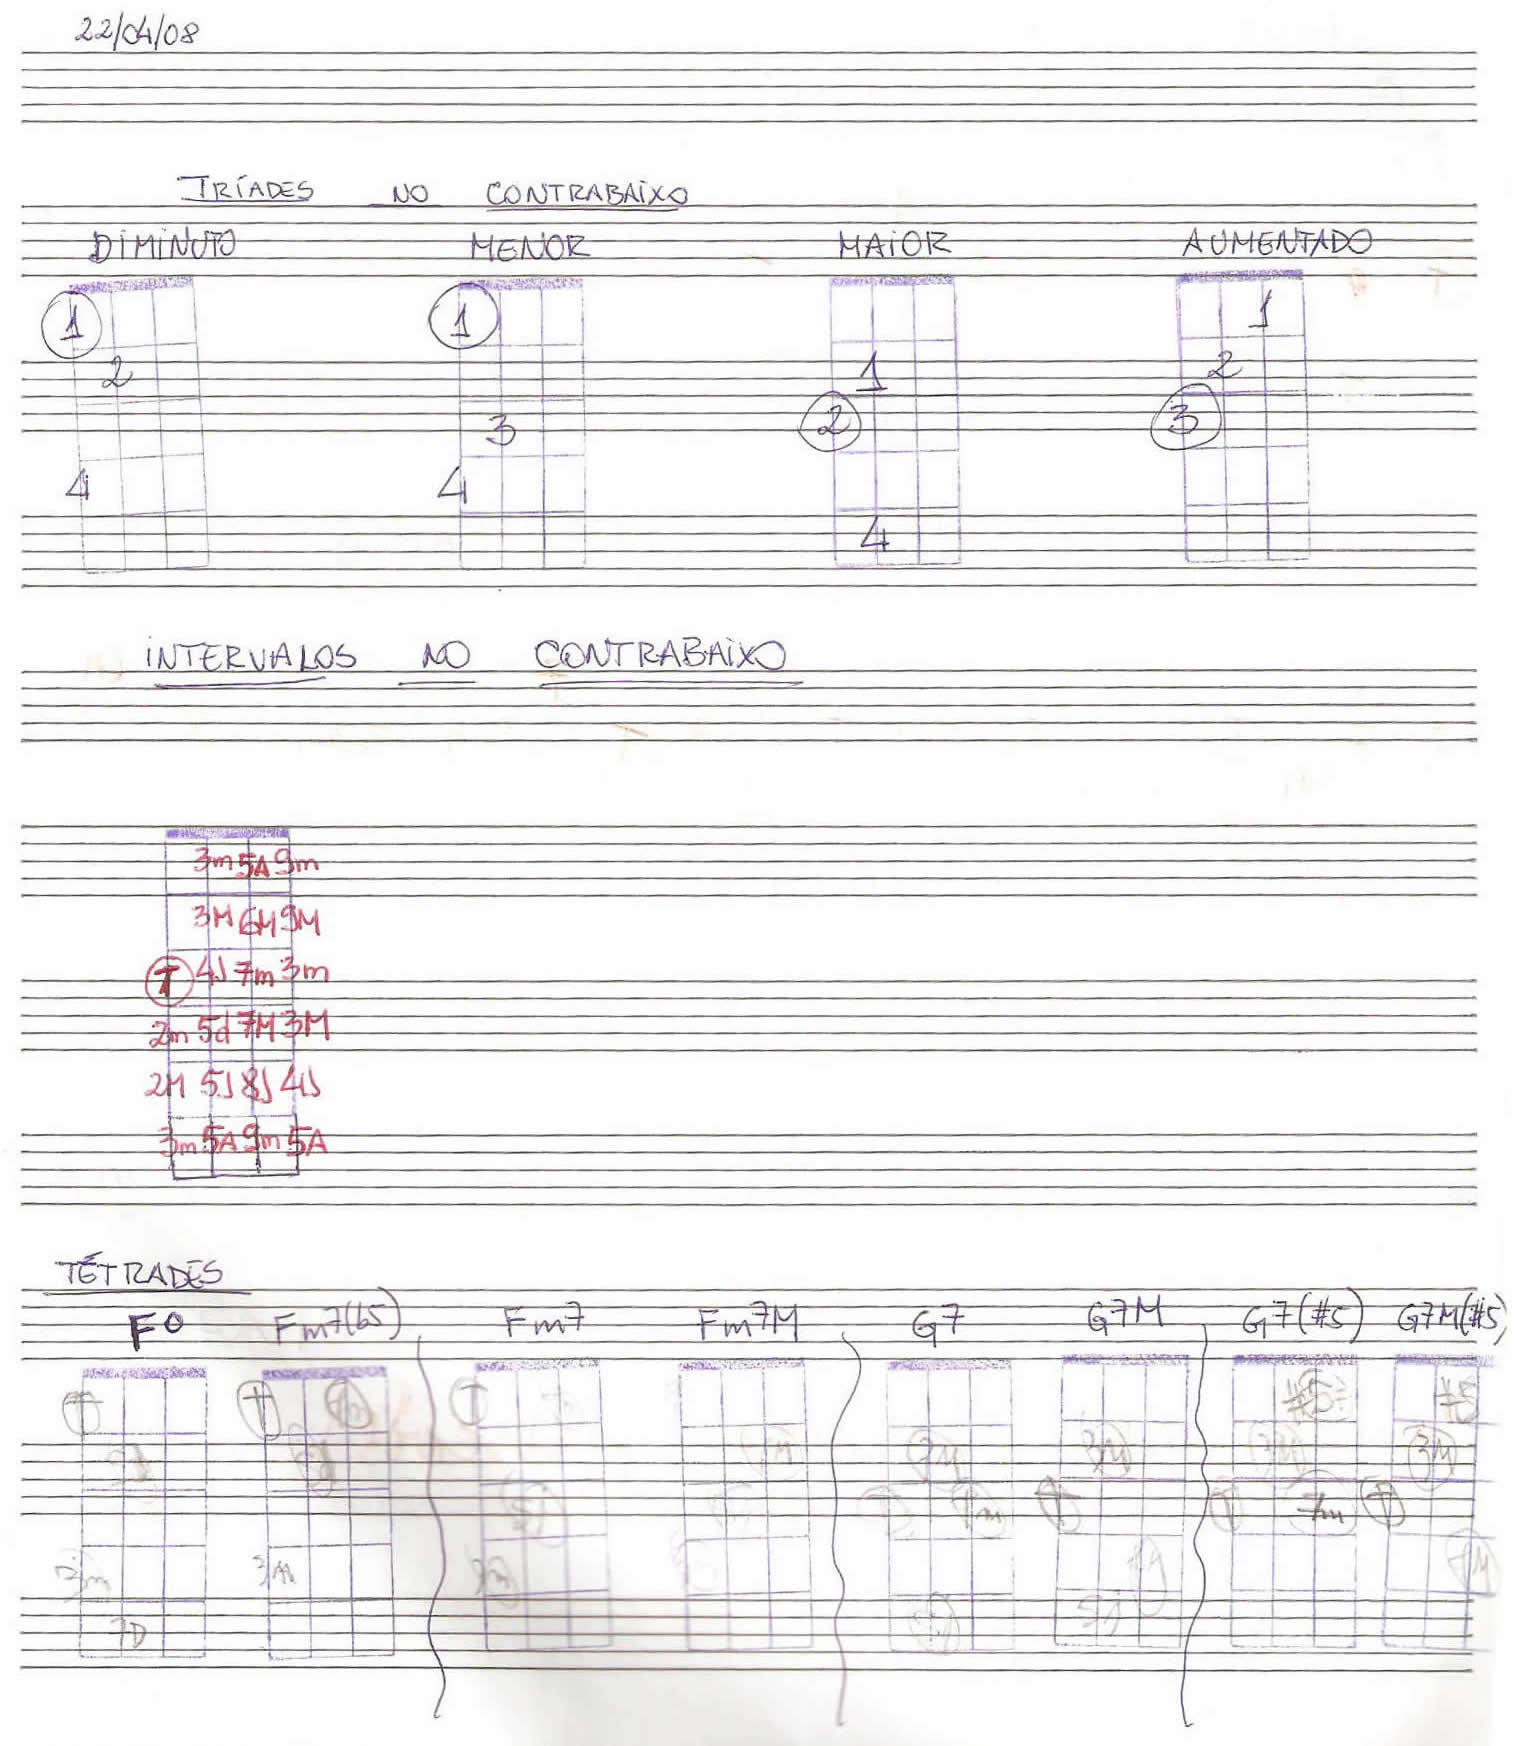 22/04/08
TRÍADES NO CONTRABAIXO
DIMINUTO MENOR MAIOR AUMENTADO
1 1 1
2 1 2
3 2 3
4 4
4
INTERVALOS NO CONTRABAIXO
3m 5A 9m
3M 6M 9M
T 4J 7m 3m
2m 5d 7M 3M
2M 5J 8J 4J
3m 5A 9m 5A
TÉTRADES
Fº Fm7(b5) Fm7 Fm7M G7 G7M G7(#5) G7M(#5)
T T 7m T #5 #5
5d 5d 7M 3M 3M 3M 3M
5J T 7m T T 7m T
3m 3m 3m 7M 7M
7D 5J 5J